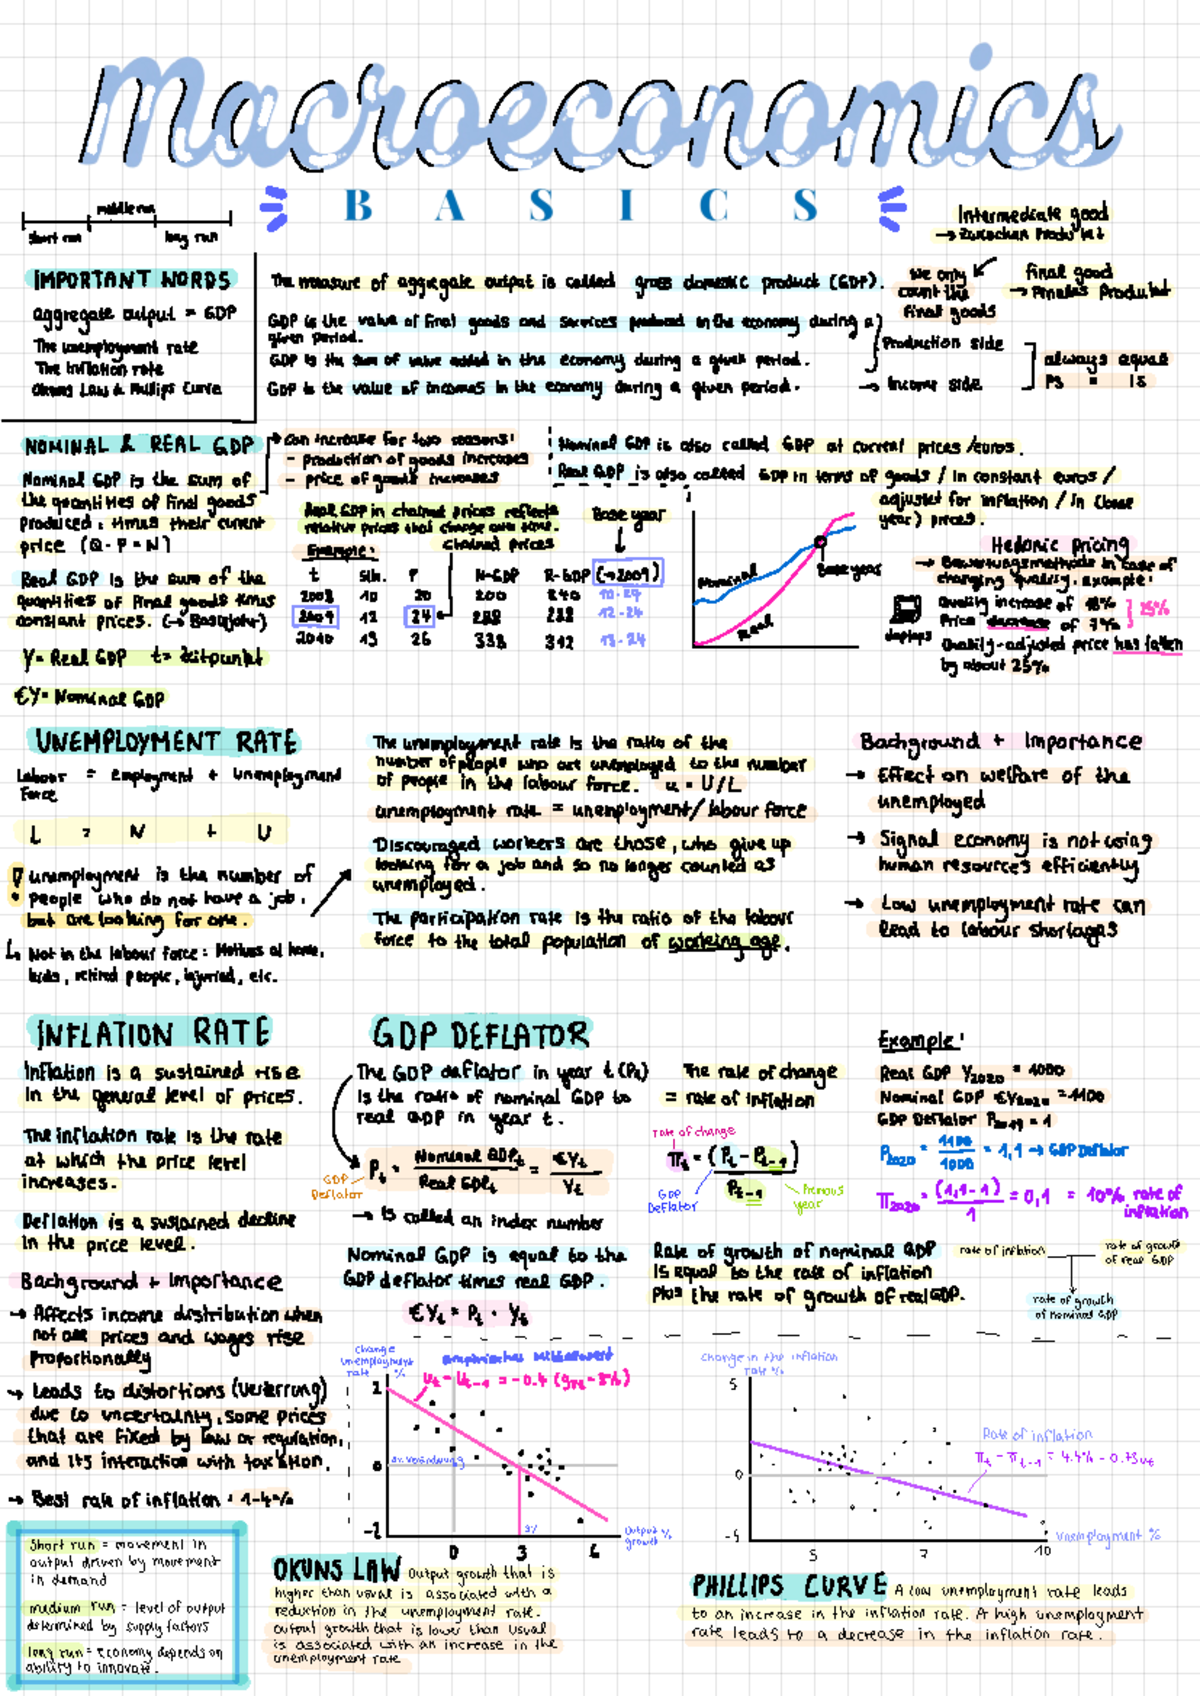 Macroeconomics
BASICS
middle run
short run
long run
Intermediate good
→ Zwischen Produkt
we only count the final goods
final good
→ Finales Produkt
IMPORTANT WORDS
aggregate output = GDP
The unemployment rate
The inflation rate
Okuns Law & Phillips Curve
The measure of aggregate output is called gross domestic product (GDP).
GDP is the value of final goods and services produced in the economy during a
given period.
GDP is the sum of value added in the economy during a given period.
GDP is the value of incomes in the economy during a given period.
Production side
→ Income side
always equal
PS = IS
NOMINAL & REAL GDP
Nominal GDP is the sum of
the quantities of final goods
produced, times their current
price (Q · P = N)
Real GDP is the sum of the
quantities of final goods times
constant prices. (→ Basisjahr)
Y = Real GDP t = Zeitpunkt
€Y = Nominal GDP
→ can increase for two reasons:
- production of goods increases
- price of goods increases
Real GDP in chained prices reflects
relative prices that change over time.
Example:
chained prices
Base year
t Stk. P N-GDP R-GDP (→2009)
2008 10 20 200 240 10·24
2009 12 24 288 288 12·24
2010 13 26 338 312 13·24
Nominal GDP is also called GDP at current prices /euros.
Real GDP is also called GDP in terms of goods / in constant euros /
adjusted for inflation / in (base
year) prices.
Nominal
Real
Base year
Hedonic pricing
→ Bewertungsmethode in case of
changing quality. example:
laptops
Quality increase of 18%
Price decrease of 7%
25%
Quality-adjusted price has fallen
by about 25%
UNEMPLOYMENT RATE
Labour = employment + unemployment
Force
L = N + U
! unemployment is the number of
people who do not have a job,
but are looking for one.
↳ Not in the labour force: Mothers at home,
kids, retired people, injured, etc.
The unemployment rate is the ratio of the
number of people who are unemployed to the number
of people in the labour force. u = U/L
unemployment rate = unemployment/labour force
Discouraged workers are those, who give up
looking for a job and so no longer counted as
unemployed.
The participation rate is the ratio of the labour
force to the total population of working age.
Background + Importance
→ Effect on welfare of the
unemployed
→ Signal economy is not using
human resources efficiently
→ Low unemployment rate can
lead to labour shortages
INFLATION RATE
Inflation is a sustained rise
in the general level of prices.
The inflation rate is the rate
at which the price level
increases.
Deflation is a sustained decline
in the price level.
Background + Importance
→ Affects income distribution when
not all prices and wages rise
proportionally
→ Leads to distortions (Verzerrung)
due to uncertainty, some prices
that are fixed by law or regulation,
and its interaction with taxation.
→ Best rate of inflation: 1-4%
GDP DEFLATOR
The GDP deflator in year t (Pt)
is the ratio of nominal GDP to
real GDP in year t.
Pt = Nominal GDPt / Real GDPt = €Yt / Yt
GDP Deflator
→ is called an index number
Nominal GDP is equal to the
GDP deflator times real GDP.
€Yt = Pt · Yt
The rate of change
= rate of inflation
rate of change
πt = (Pt - Pt-1) / Pt-1
GDP Deflator
Previous year
Rate of growth of nominal GDP
is equal to the rate of inflation
plus the rate of growth of real GDP.
Example:
Real GDP Y2020 = 1000
Nominal GDP €Y2020 = 1100
GDP Deflator P2019 = 1
P2020 = 1100 / 1000 = 1,1 → GDP Deflator
π2020 = (1,1-1) / 1 = 0,1 = 10% rate of
inflation
rate of inflation
rate of growth
of real GDP
rate of growth
of nominal GDP
Change
unemployment
rate %
ut - ut-1 = -0.4 (gyt - 3%)
2
0
-2
0 3 6
3%
Output %
growth
OKUNS LAW Output growth that is
higher than usual is associated with a
reduction in the unemployment rate.
output growth that is lower than usual
is associated with an increase in the
unemployment rate
Change in the inflation
rate %
5
0
-5
5 7 10
Rate of inflation
πt - πt-1 = 4.4% - 0.73ut
Unemployment %
PHILLIPS CURVE A low unemployment rate leads
to an increase in the inflation rate. A high unemployment
rate leads to a decrease in the inflation rate.
Short run = movement in
output driven by movement
in demand
medium run = level of output
determined by supply factors
long run = Economy depends on
ability to innovate.